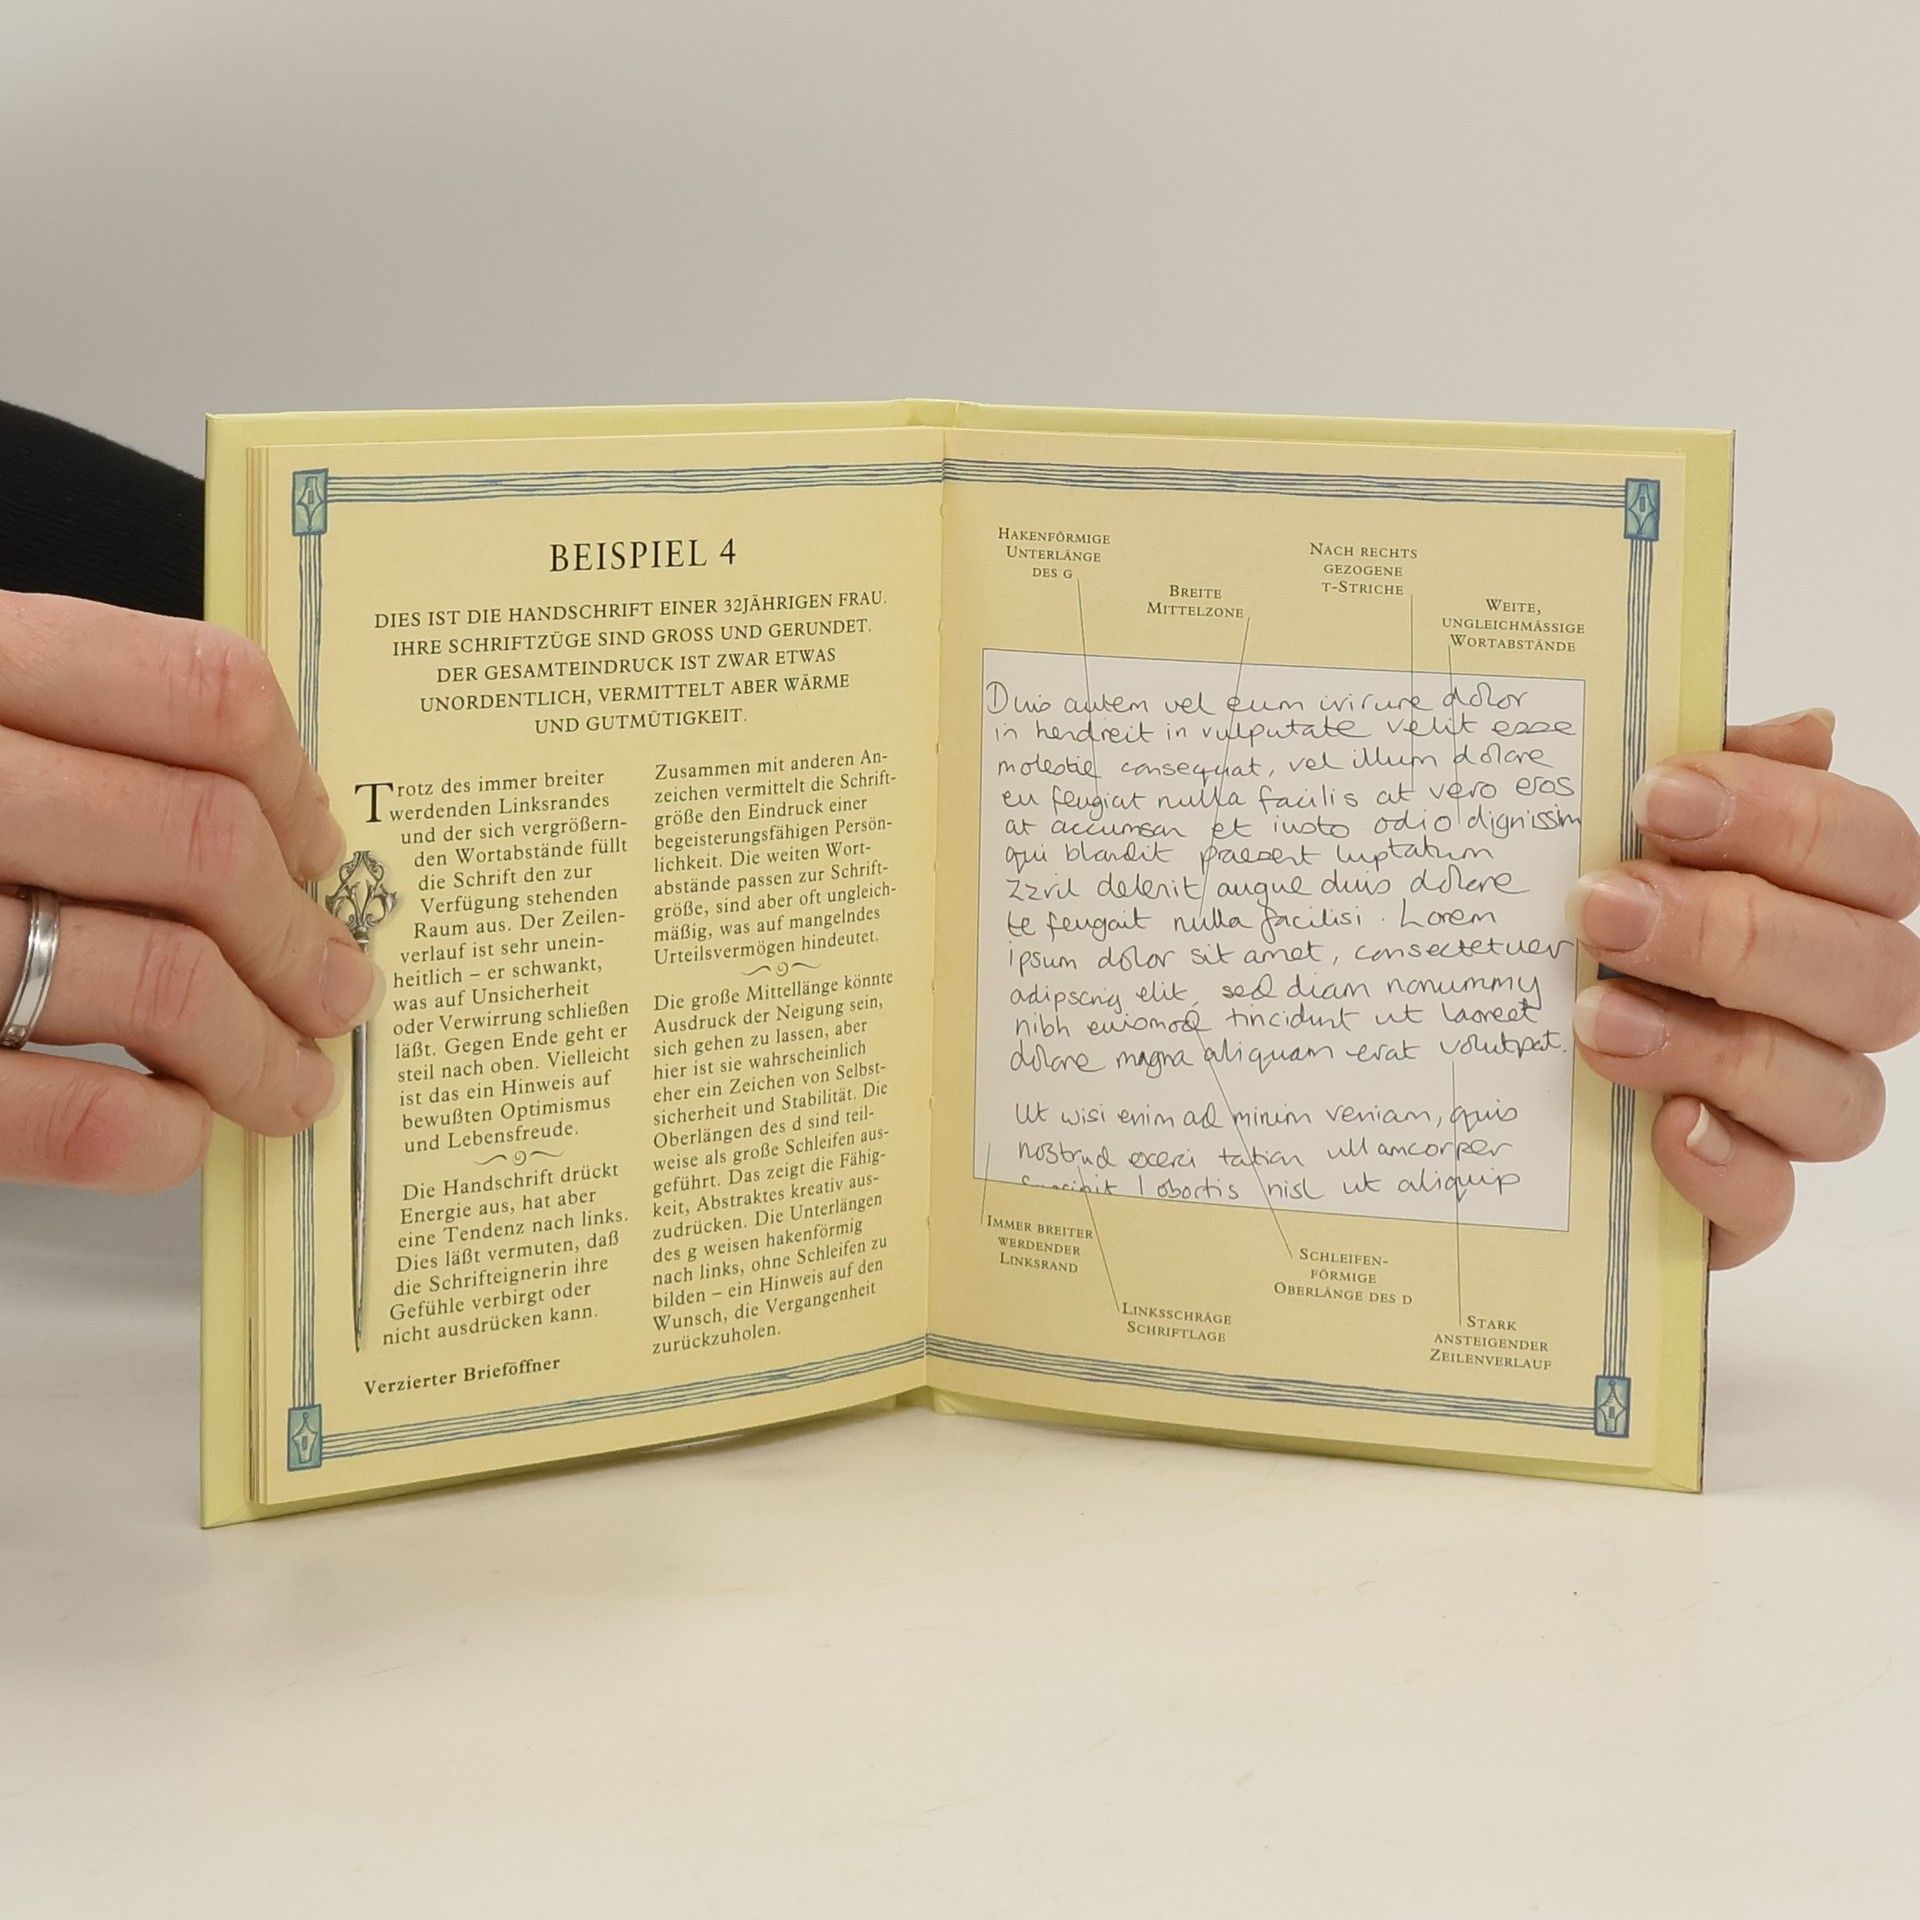 BEISPIEL 4
DIES IST DIE HANDSCHRIFT EINER 32JÄHRIGEN FRAU.
IHRE SCHRIFTZÜGE SIND GROSS UND GERUNDET.
DER GESAMTEINDRUCK IST ZWAR ETWAS
UNORDENTLICH, VERMITTELT ABER WÄRME
UND GUTMÜTIGKEIT.
Trotz des immer breiter
werdenden Linksrandes
und der sich vergrößern-
den Wortabstände füllt
die Schrift den zur
Verfügung stehenden
Raum aus. Der Zeilen-
verlauf ist sehr unein-
heitlich – er schwankt,
was auf Unsicherheit
oder Verwirrung schließen
läßt. Gegen Ende geht er
steil nach oben. Vielleicht
ist das ein Hinweis auf
bewußten Optimismus
und Lebensfreude.
Die Handschrift drückt
Energie aus, hat aber
eine Tendenz nach links.
Dies läßt vermuten, daß
die Schrifteignerin ihre
Gefühle verbirgt oder
nicht ausdrücken kann.
Verzierter Brieföffner
Zusammen mit anderen An-
zeichen vermittelt die Schrift-
größe den Eindruck einer
begeisterungsfähigen Persön-
lichkeit. Die weiten Wort-
abstände passen zur Schrift-
größe, sind aber oft ungleich-
mäßig, was auf mangelndes
Urteilsvermögen hindeutet.
Die große Mittellänge könnte
Ausdruck der Neigung sein,
sich gehen zu lassen, aber
hier ist sie wahrscheinlich
eher ein Zeichen von Selbst-
sicherheit und Stabilität. Die
Oberlängen des d sind teil-
weise als große Schleifen aus-
geführt. Das zeigt die Fähig-
keit, Abstraktes kreativ aus-
zudrücken. Die Unterlängen
des g weisen hakenförmig
nach links, ohne Schleifen zu
bilden – ein Hinweis auf den
Wunsch, die Vergangenheit
zurückzuholen.
HAKENFÖRMIGE
UNTERLÄNGE
DES G
BREITE
MITTELZONE
NACH RECHTS
GEZOGENE
T-STRICHE
WEITE,
UNGLEICHMÄSSIGE
WORTABSTÄNDE
Duis autem vel eum irirure dolor
in hendreit in vulputate velit esse
molestie consequat, vel illum dolore
eu feugiat nulla facilis at vero eros
at accumsan et iusto odio dignissim
qui blandit praesent luptatum
Zzril delenit augue duis dolore
te feugait nulla facilisi. Lorem
ipsum dolor sit amet, consectetuer
adipscing elit, sed diam nonummy
nibh euismod tincidunt ut laoreet
dolore magna aliquam erat volutpat.
Ut wisi enim ad minim veniam, quis
nostrud exerci tation ullamcorper
Suscipit lobortis nisl ut aliquip
IMMER BREITER
WERDENDER
LINKSRAND
LINKSSCHRÄGE
SCHRIFTLAGE
SCHLEIFEN-
FÖRMIGE
OBERLÄNGE DES D
STARK
ANSTEIGENDER
ZEILENVERLAUF